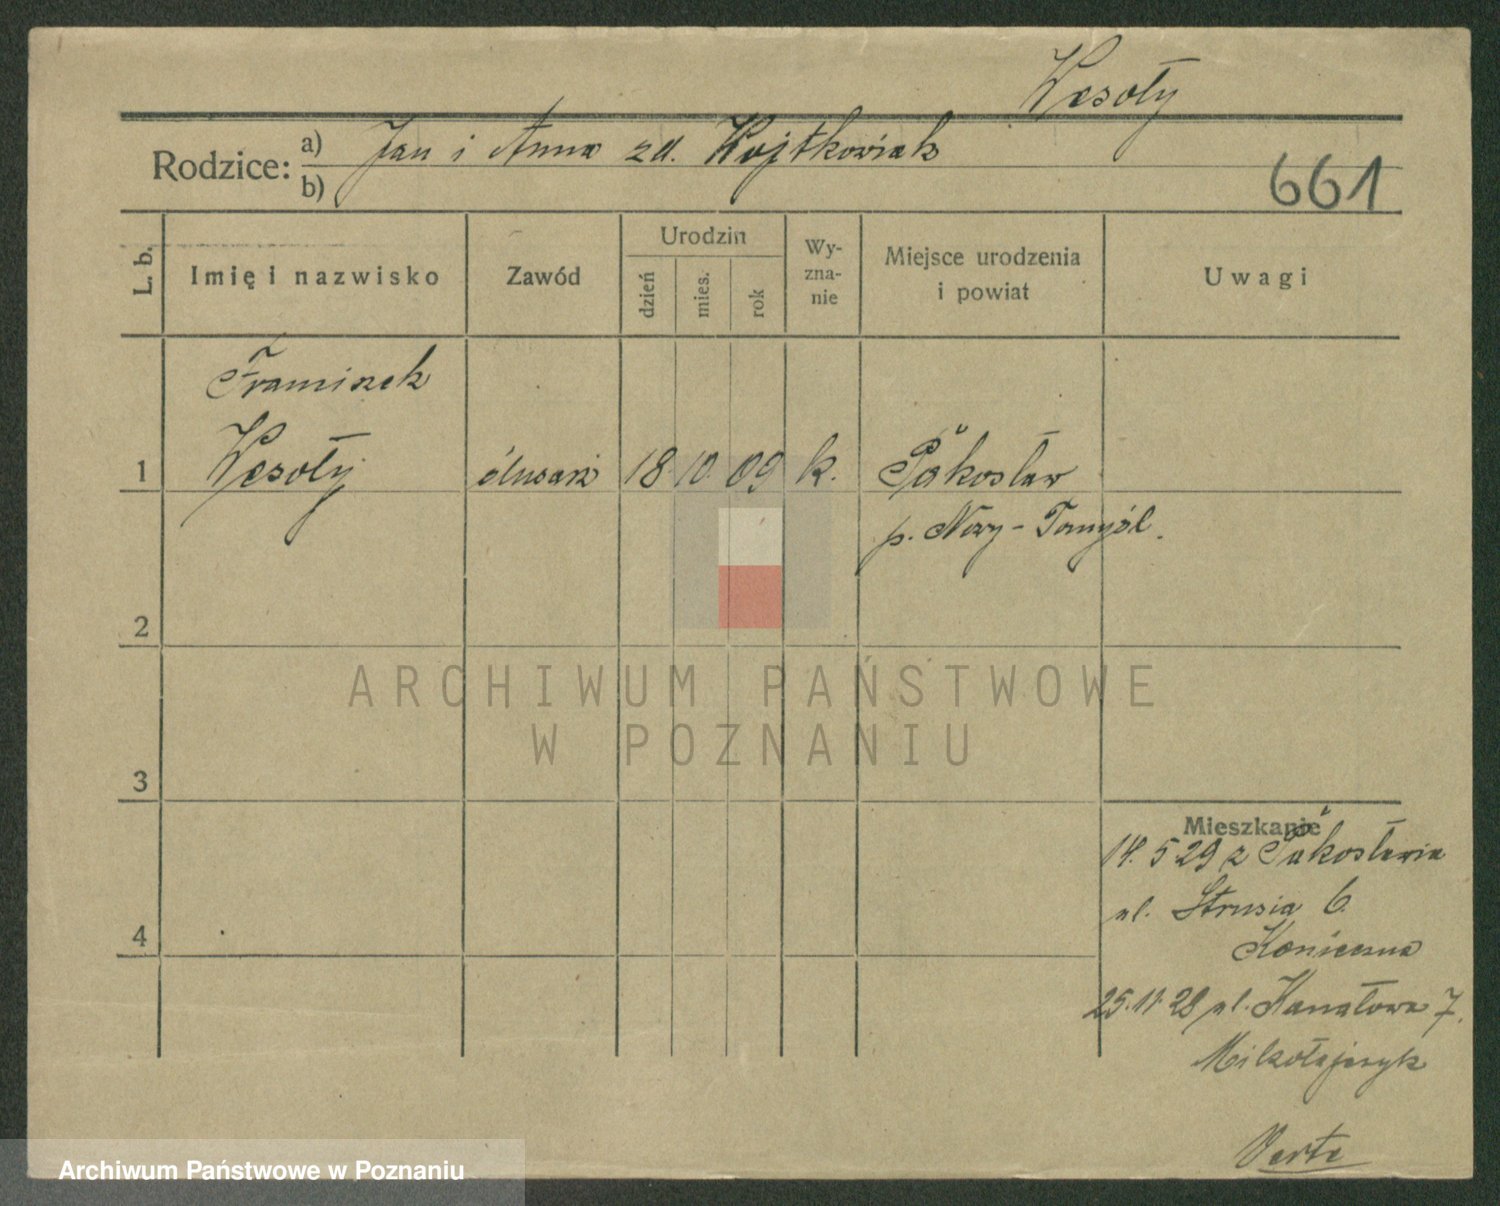 Wesoły
Rodzice: a) Jan i Anna zd. Wojtkowiak
b)
661
L. b. Imię i nazwisko Zawód Urodzin dzień mies. rok Wyznanie Miejsce urodzenia i powiat Uwagi
Franciszek
1 Wesoły ślusarz 18 10. 09 k. Pakosław
p. Nowy-Tomyśl.
2
ARCHIWUM PAŃSTWOWE
W POZNANIU
3
Mieszkanie
14. 5 29 z Pakosławia
ul. Strusia 6.
4
Konieczna
25. 11. 28 ul. Kanałowa 7.
Mikołajczyk
Verte
Archiwum Państwowe w Poznaniu